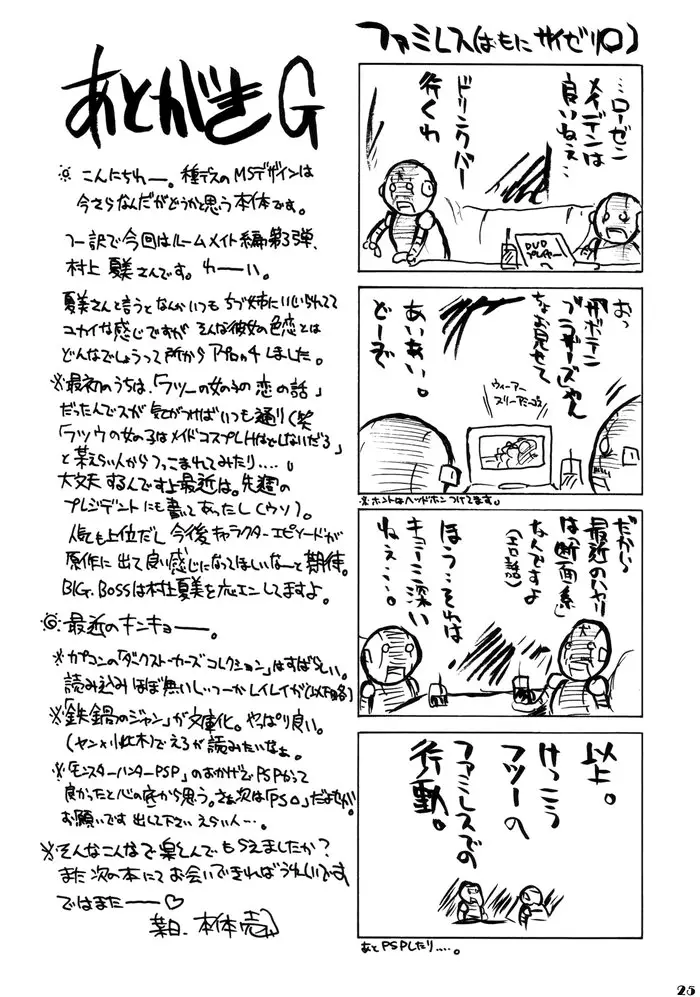 あとがきG
こんにちわー。種デスのMSデザインは
今さらなんだがどうか思う本体です。
つー訳で今回はルームメイト編第3弾、
村上夏美さんです。わーい。
夏美さんと言うとなんかいつもちづ姉にいじられてて
ユカイな感じですが そんな彼女の色恋とは
どんなでしょうって所からアプローチしました。
※最初のうちは、「フツーの女の子の恋の話」
だったんでスが 気がつけばいつも通り(笑
「フツウの女の子はメイドコスプレHはしないだろ」
と某えらい人からつっこまれてみたり‥‥。
大丈夫 するんですよ最近は。先週の
プレジデントにも書いてあったし(ウソ)。
人気も上位だし 今後キャラクターエピソードが
原作に出て良い感じになってほしいなーと期待。
BIG.BOSSは村上夏美を応エンしてますよ。
最近のキンキョー。
※カプコンの「ダークストーカーズコレクション」はすばらしい。
読み込みほぼ無いしっつーかレイレイが(以下略)
※「鉄鍋のジャン」が文庫化。やっぱり良い。
(ヤン×小此木)でえろが読みたいなぁ。
※「モンスターハンターPSP」のおかげでPSPかって
良かったと心の底から思う。さぁ次は「PS○」だよせ
お願いです 出して下さい えらい人…。
※そんなこんなで楽しんでもらえましたか?
また次の本にてお会いできればうれしいです
ではまたーー♡
某日、本体売
ファミレス(おもにサイゼリ○)
…ローゼン
メイデンは
良いねぇ…
ドリンクバー
行くわ
DVD
プレイヤー
へ
おっ
「サボテン
ブラザーズ」じゃん
ちょお見せて
あいあい。
どーぞ
ウィーアー
スリーアミーゴス
※ホントはヘッドホンつけてます。
だから
最近のハヤリ
は「断面系」
なんですよ
(エロ話)
ほう‥それは
キョーミ深い
ねぇ…。
以上。
けっこう
フツーの
ファミレスでの
行動。
あとPSPしたり‥‥。
25